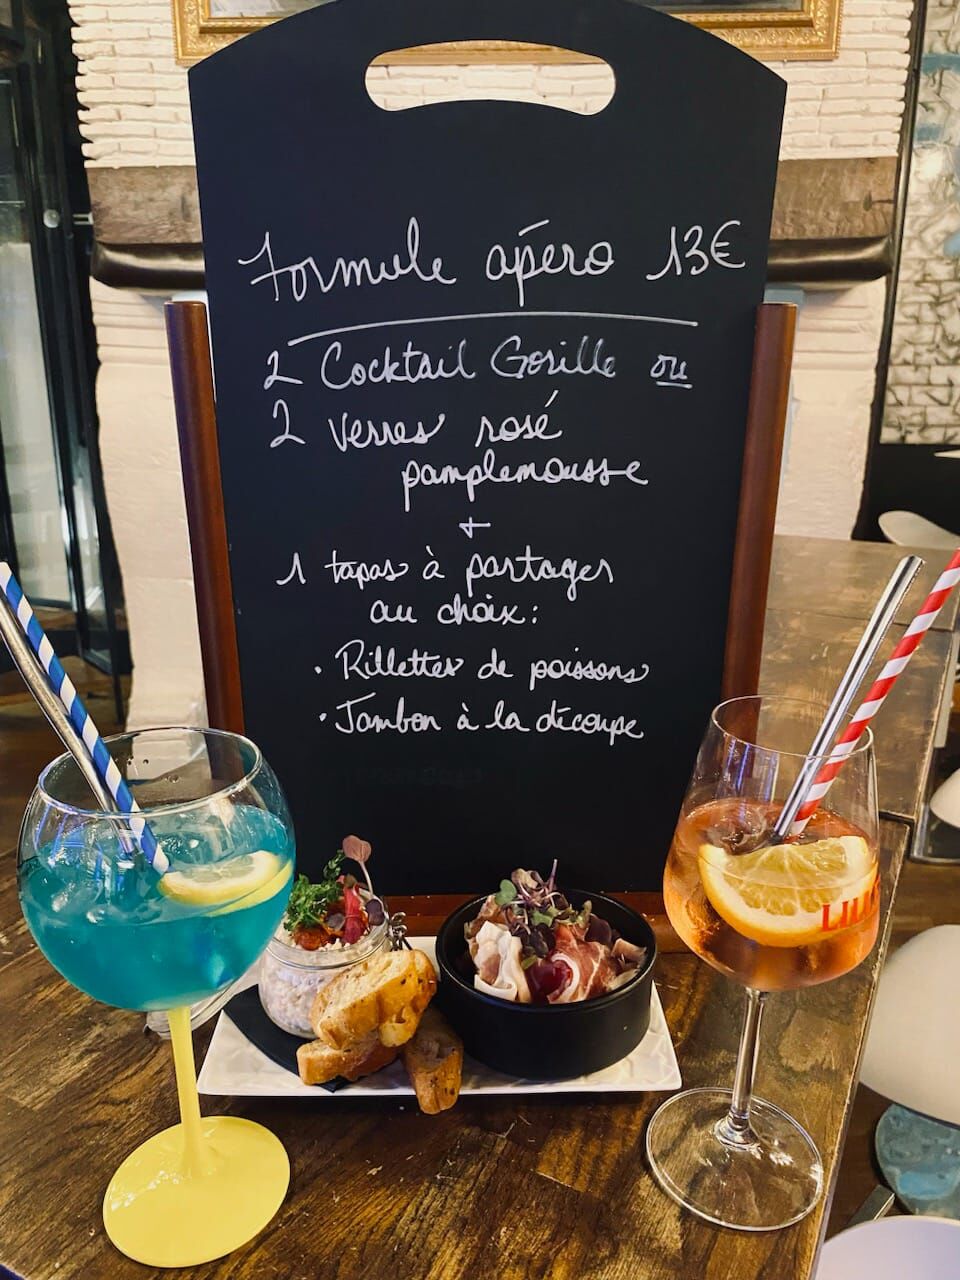 Formule apéro 13€
2 Cocktail Gorille ou
2 verres rosé
pamplemousse
+
1 tapas à partager
au choix:
• Rillettes de poissons
• Jambon à la découpe
LILL